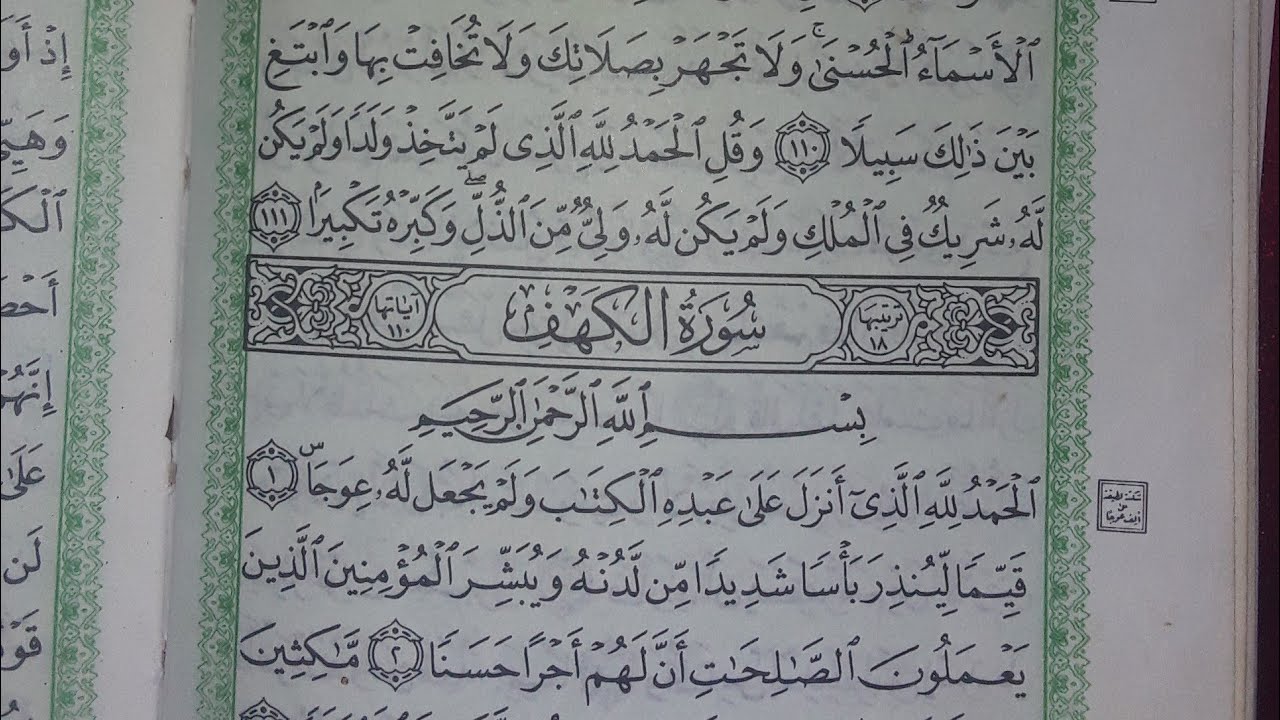 ٱلْأَسْمَآءُ ٱلْحُسْنَىٰ ۚ وَلَا تَجْهَرْ بِصَلَاتِكَ وَلَا تُخَافِتْ بِهَا وَٱبْتَغِ
بَيْنَ ذَٰلِكَ سَبِيلًا ١١٠ وَقُلِ ٱلْحَمْدُ لِلَّهِ ٱلَّذِى لَمْ يَتَّخِذْ وَلَدًا وَلَمْ يَكُن
لَّهُۥ شَرِيكٌ فِى ٱلْمُلْكِ وَلَمْ يَكُن لَّهُۥ وَلِىٌّ مِّنَ ٱلذُّلِّ ۖ وَكَبِّرْهُ تَكْبِيرًۢا ١١١
ترتيبها ١٨ سُورَةُ الكَهْفِ آياتها ١١٠
بِسْمِ ٱللَّهِ ٱلرَّحْمَٰنِ ٱلرَّحِيمِ
ٱلْحَمْدُ لِلَّهِ ٱلَّذِىٓ أَنزَلَ عَلَىٰ عَبْدِهِ ٱلْكِتَٰبَ وَلَمْ يَجْعَل لَّهُۥ عِوَجَا ۜ ١
قَيِّمًا لِّيُنذِرَ بَأْسًا شَدِيدًا مِّن لَّدُنْهُ وَيُبَشِّرَ ٱلْمُؤْمِنِينَ ٱلَّذِينَ
يَعْمَلُونَ ٱلصَّٰلِحَٰتِ أَنَّ لَهُمْ أَجْرًا حَسَنًا ٢ مَّٰكِثِينَ
سكتة لطيفة على ألف عوجا
إِذْ
عَلَىٰ
لَن